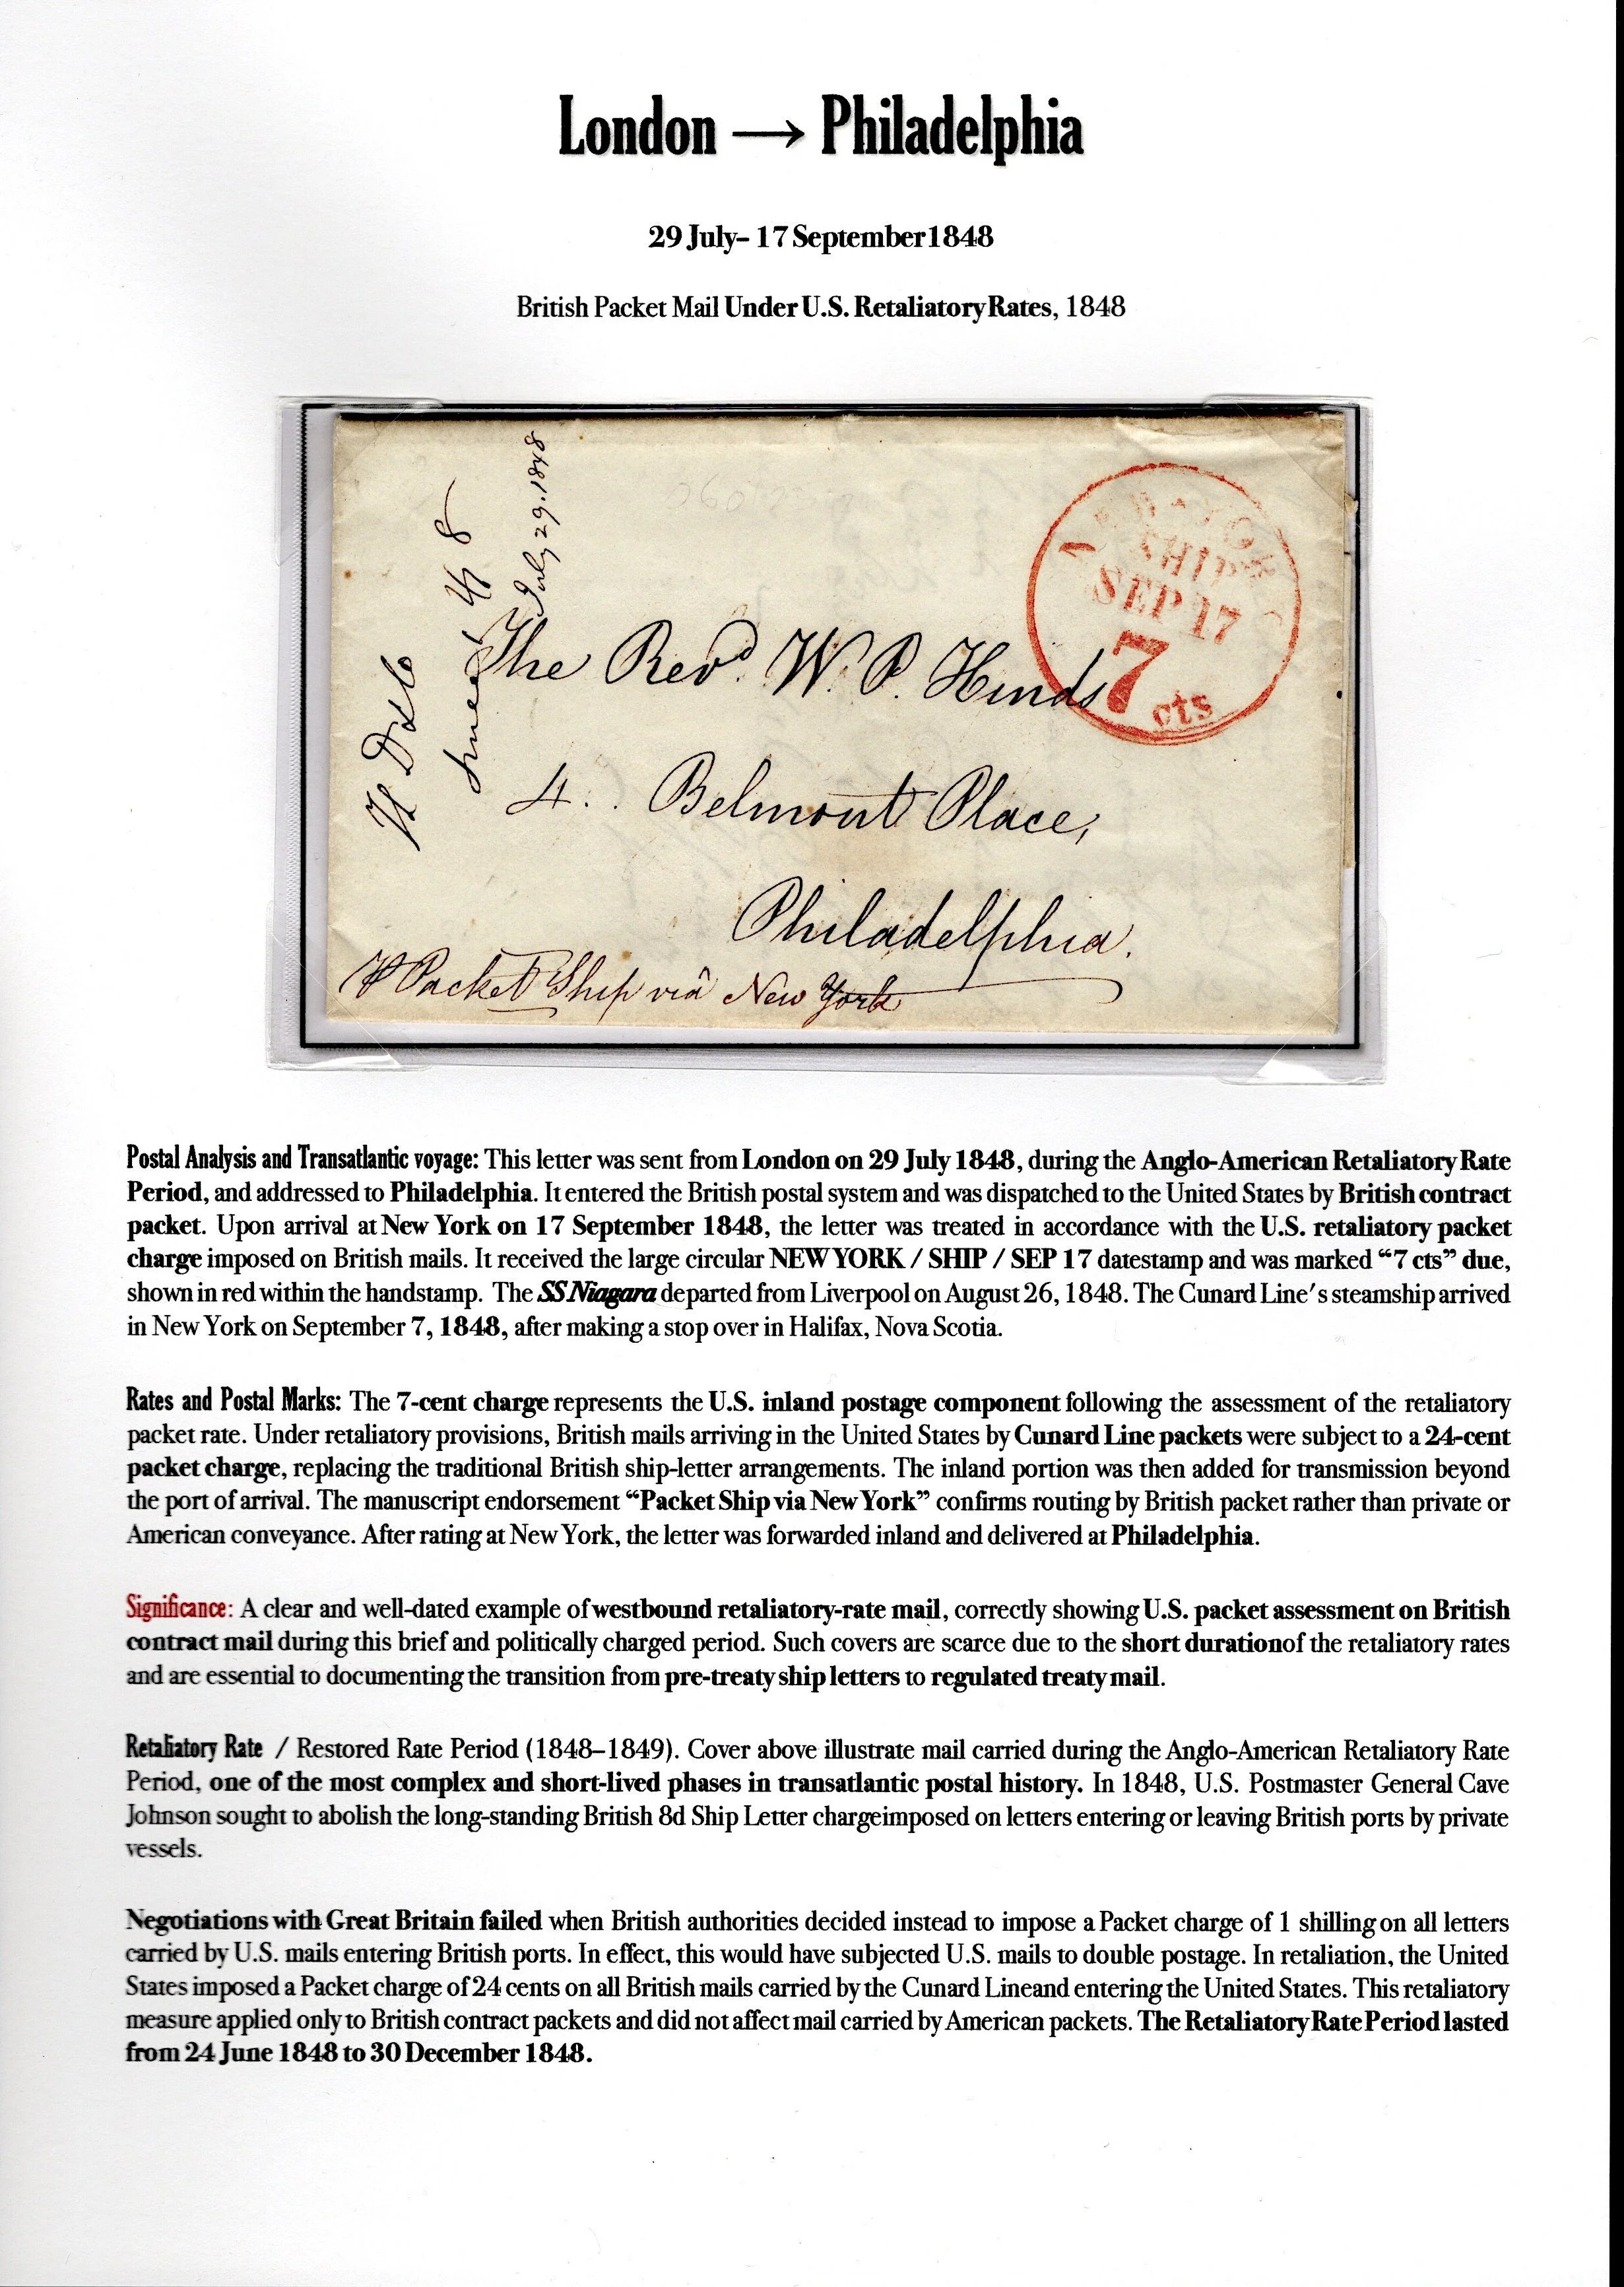 London → Philadelphia
29 July– 17 September 1848
British Packet Mail Under U.S. Retaliatory Rates, 1848
July 29. 1848
NEW-YORK
SHIP
SEP 17
7
cts
The Revd. W. P. Hinds
4. Belmont Place,
Philadelphia.
P Packet Ship viâ New York
Postal Analysis and Transatlantic voyage: This letter was sent from London on 29 July 1848, during the Anglo-American Retaliatory Rate
Period, and addressed to Philadelphia. It entered the British postal system and was dispatched to the United States by British contract
packet. Upon arrival at New York on 17 September 1848, the letter was treated in accordance with the U.S. retaliatory packet
charge imposed on British mails. It received the large circular NEW YORK / SHIP / SEP 17 datestamp and was marked “7 cts” due,
shown in red within the handstamp. The SS Niagara departed from Liverpool on August 26, 1848. The Cunard Line's steamship arrived
in New York on September 7, 1848, after making a stop over in Halifax, Nova Scotia.
Rates and Postal Marks: The 7-cent charge represents the U.S. inland postage component following the assessment of the retaliatory
packet rate. Under retaliatory provisions, British mails arriving in the United States by Cunard Line packets were subject to a 24-cent
packet charge, replacing the traditional British ship-letter arrangements. The inland portion was then added for transmission beyond
the port of arrival. The manuscript endorsement “Packet Ship via New York” confirms routing by British packet rather than private or
American conveyance. After rating at New York, the letter was forwarded inland and delivered at Philadelphia.
Significance: A clear and well-dated example of westbound retaliatory-rate mail, correctly showing U.S. packet assessment on British
contract mail during this brief and politically charged period. Such covers are scarce due to the short durationof the retaliatory rates
and are essential to documenting the transition from pre-treaty ship letters to regulated treaty mail.
Retaliatory Rate / Restored Rate Period (1848–1849). Cover above illustrate mail carried during the Anglo-American Retaliatory Rate
Period, one of the most complex and short-lived phases in transatlantic postal history. In 1848, U.S. Postmaster General Cave
Johnson sought to abolish the long-standing British 8d Ship Letter chargeimposed on letters entering or leaving British ports by private
vessels.
Negotiations with Great Britain failed when British authorities decided instead to impose a Packet charge of 1 shilling on all letters
carried by U.S. mails entering British ports. In effect, this would have subjected U.S. mails to double postage. In retaliation, the United
States imposed a Packet charge of 24 cents on all British mails carried by the Cunard Lineand entering the United States. This retaliatory
measure applied only to British contract packets and did not affect mail carried by American packets. The Retaliatory Rate Period lasted
from 24 June 1848 to 30 December 1848.